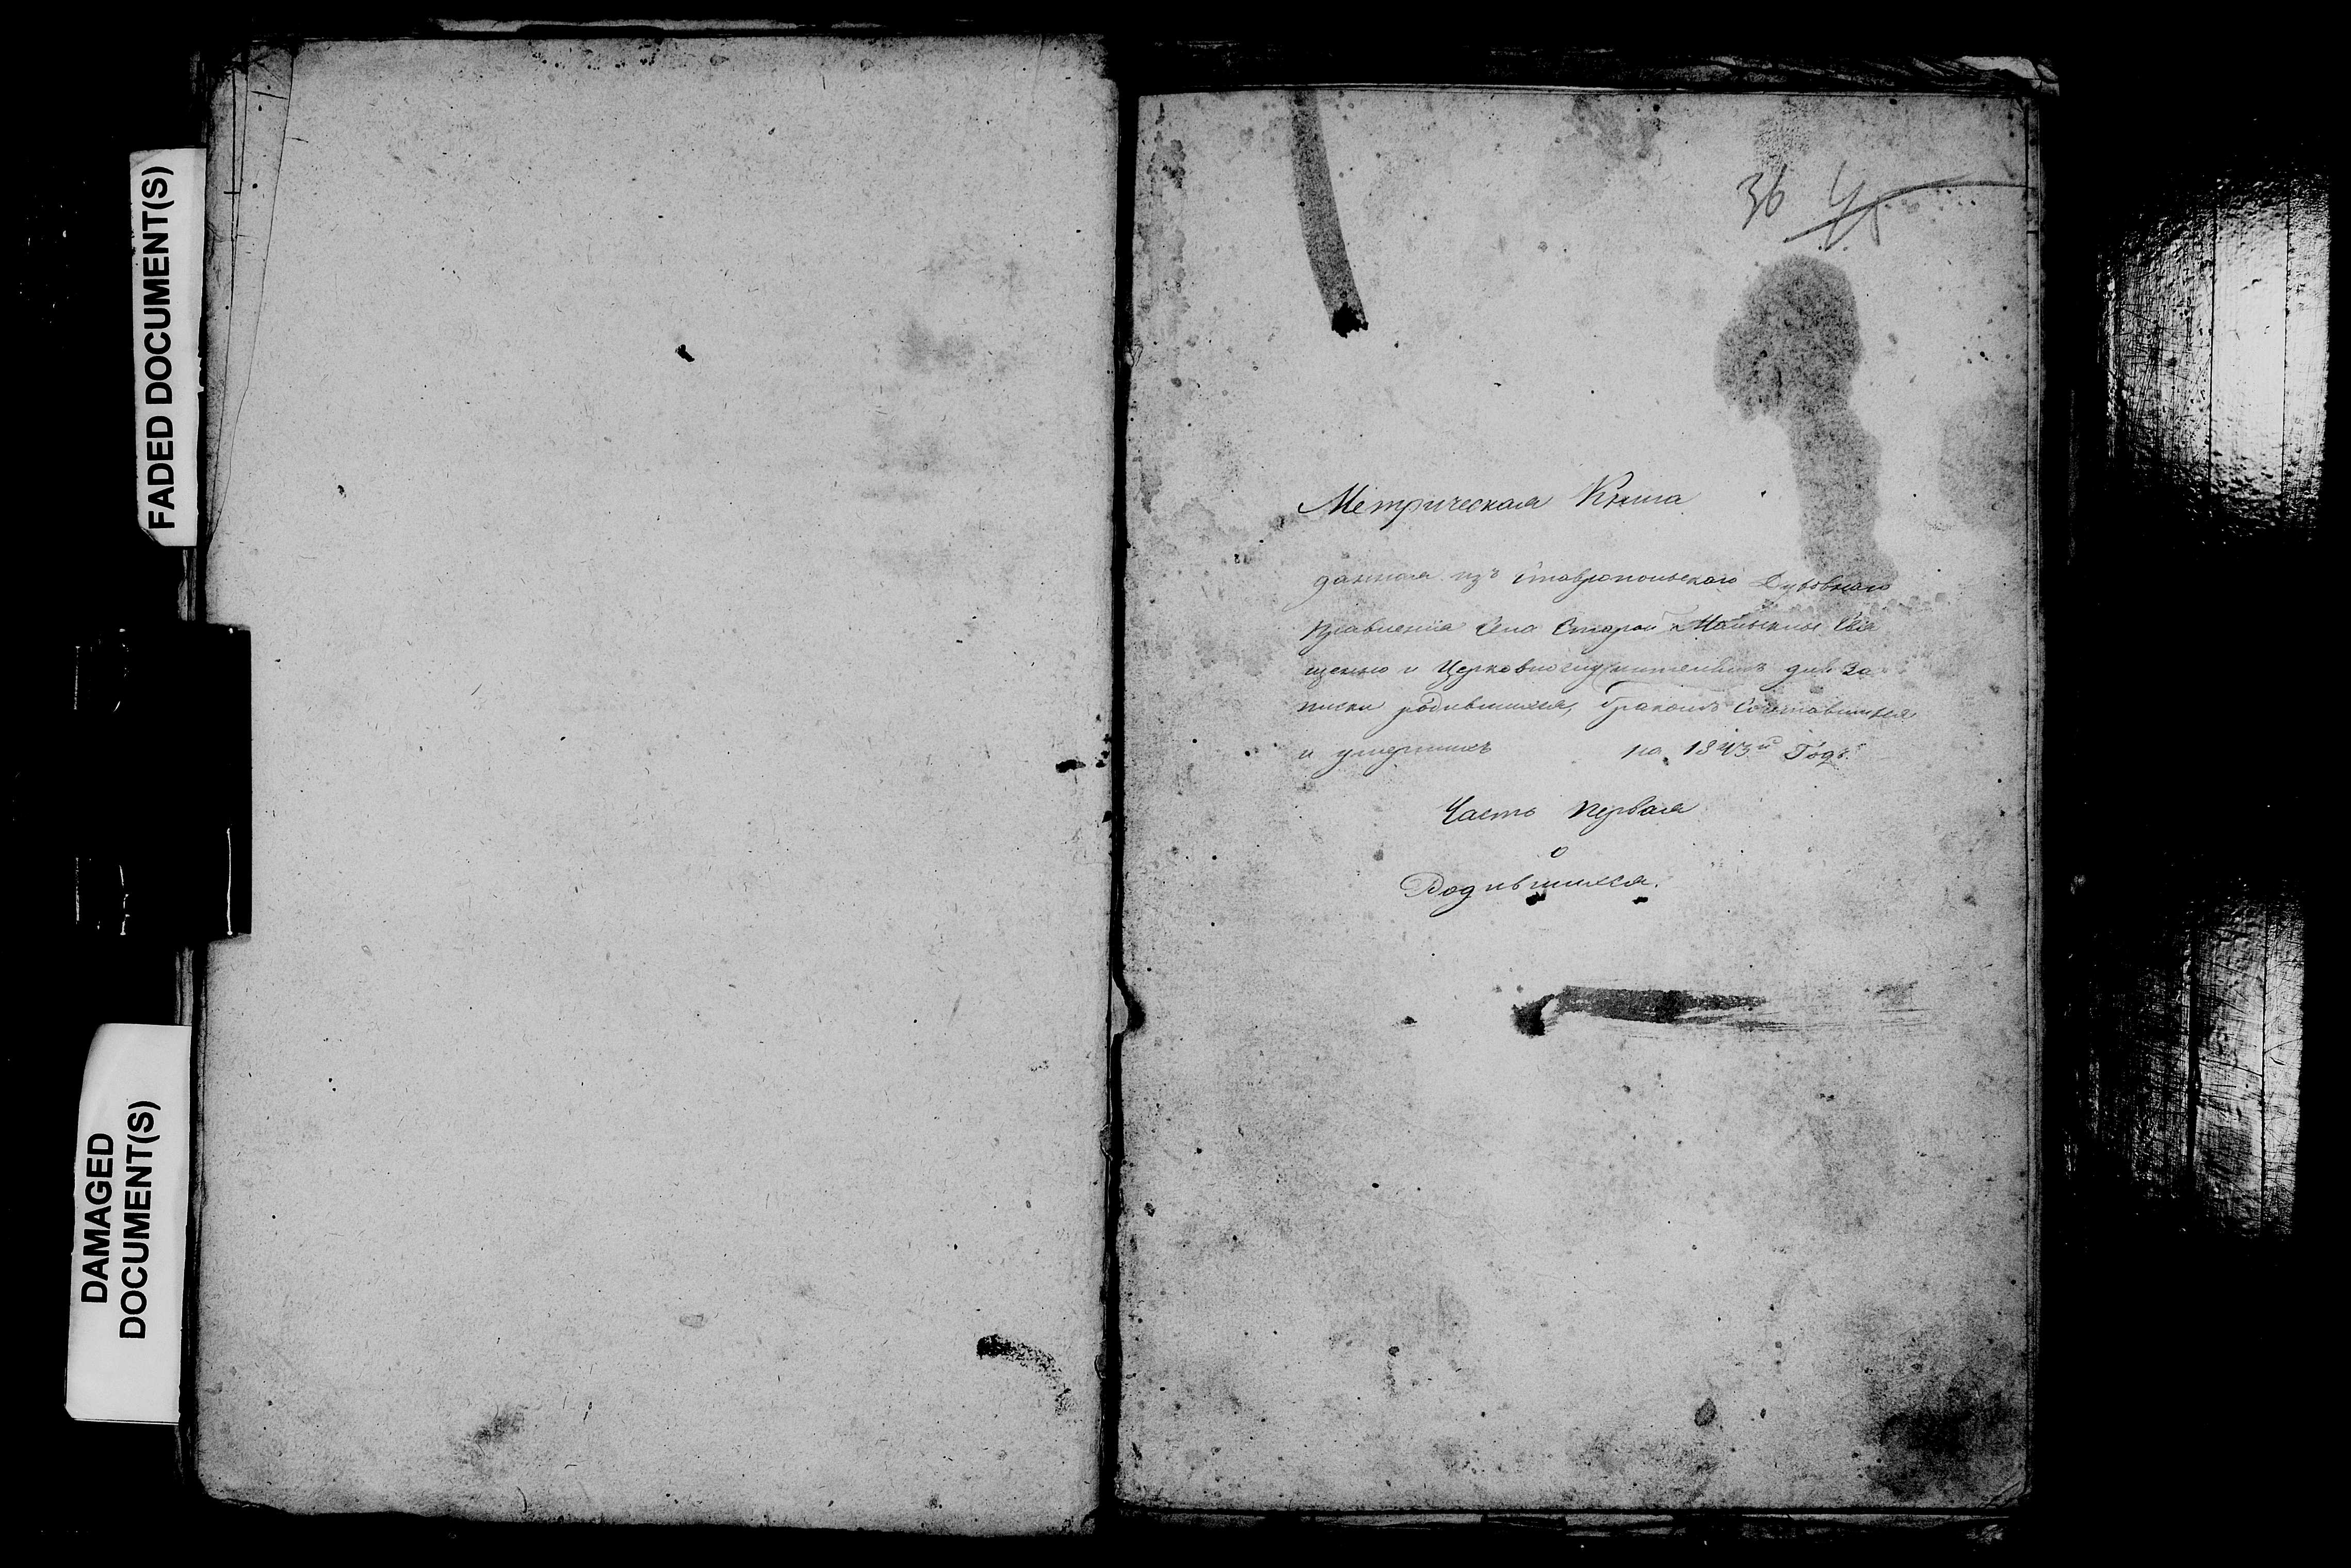 FADED DOCUMENT(S)
DAMAGED
DOCUMENT(S)
36 45
Метрическая Книга
данная изъ Ставропольскаго Духовнаго
Правления Села Старой Майны Свя
щенно и Церковнослужителямъ для за
писки родившихся, бракомъ сочетавшихся
и умершихъ на 1843й Годъ.
Часть первая
о
Родившихся.